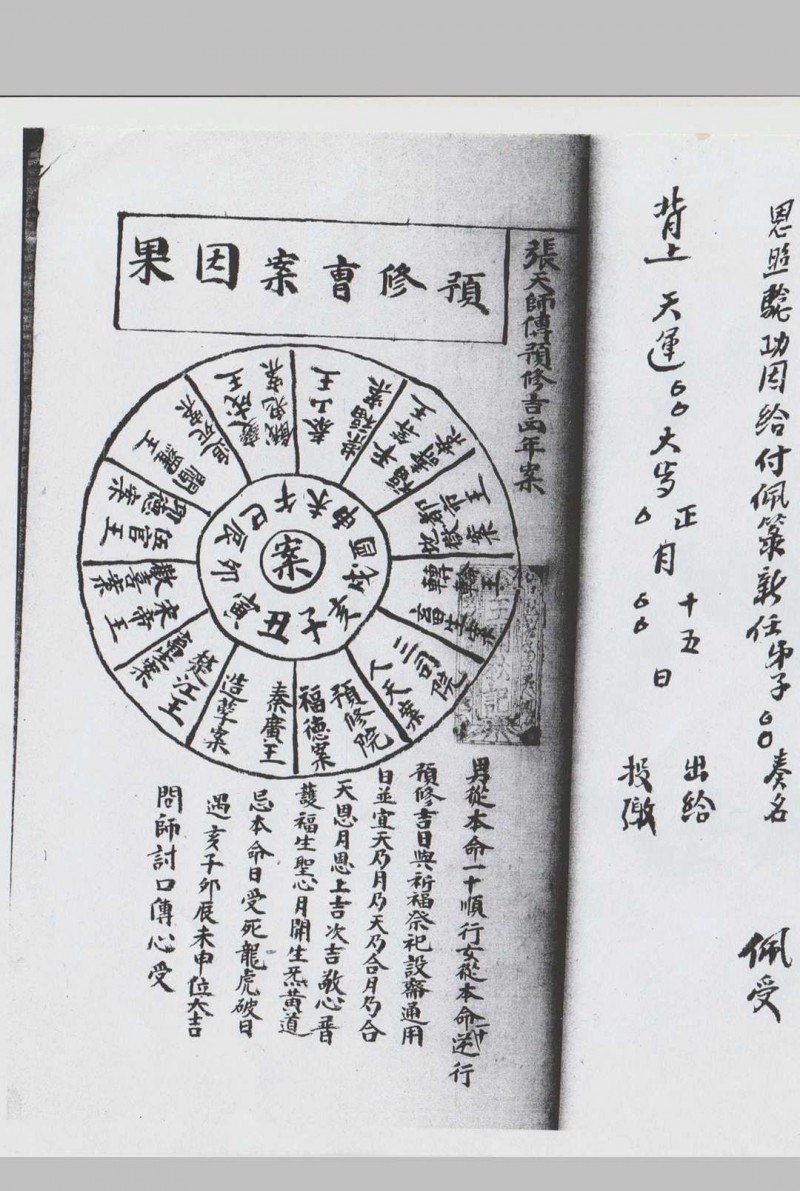 恩照驗功因給付佩籙新任弟子 奏名
佩受
背上 天運 大歲
正月
十五
日
出給
投繳
張天師傳預修吉凶年案
預修曹案因果
案
子
丑
寅
卯
辰
巳
午
未
申
戌
亥
預修院
福德案
秦廣王
造孽案
楚江王
宋帝王
歡喜案
伍官王
閻羅王
變成王
泰山王
崇福案
平等王
福壽案
轉輪王
畜生案
三司院
人天案
男從本命一十順行女從本命一十逆行
預修吉日與祈福祭祀設齋通用
日並宜天乃月乃天乃合月乃合
天恩月恩上吉次吉敬心普
護福生聖心月開生炁黃道
忌本命日受死龍虎破日
遇亥子卯辰未申位大吉
問師討口傳心受